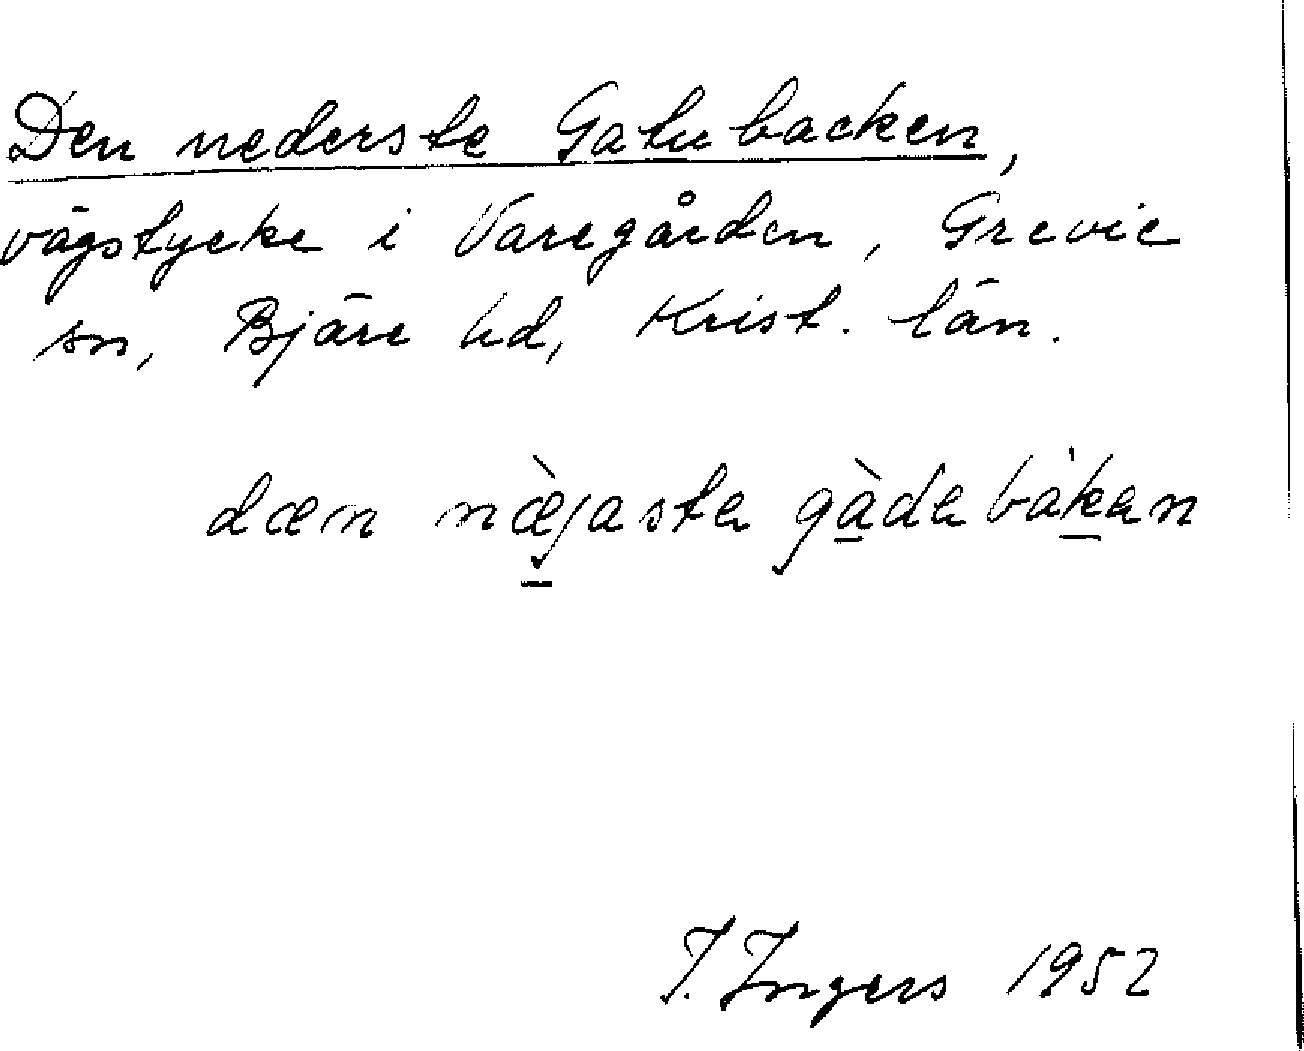 Den nederste Gatubacken,
vägstycke i Varegården, Grevie
sn, Bjäre hd, Krist. län.
dæn næ̀jasta gàdabákan
I. Ingers 1952